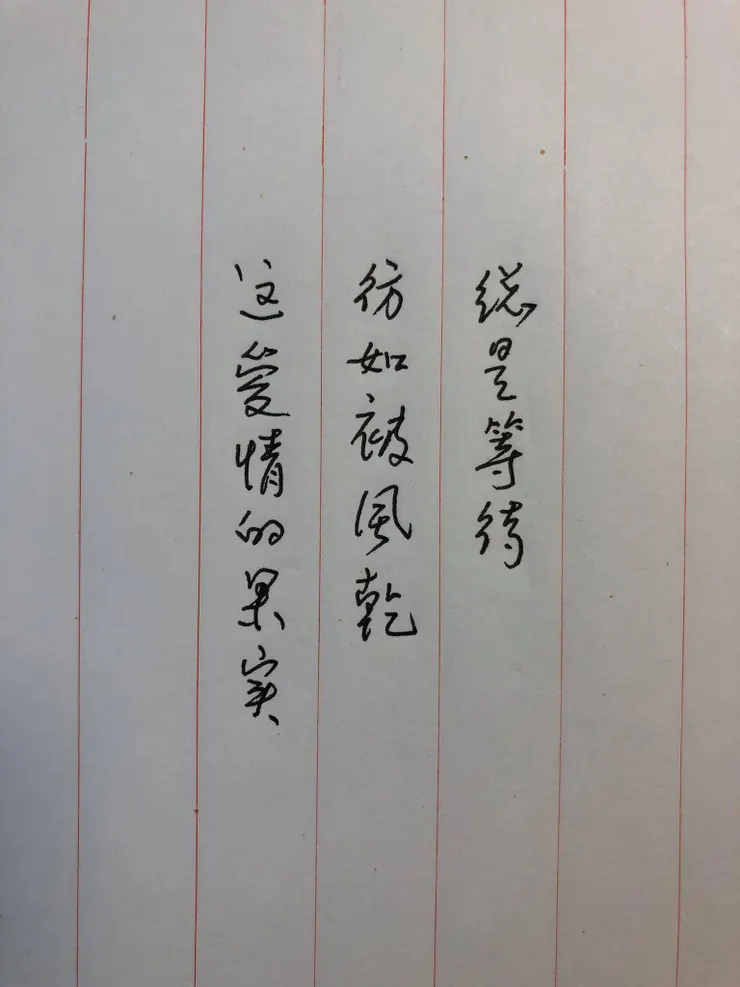 總是等待
彷如被風乾
这愛情的果实